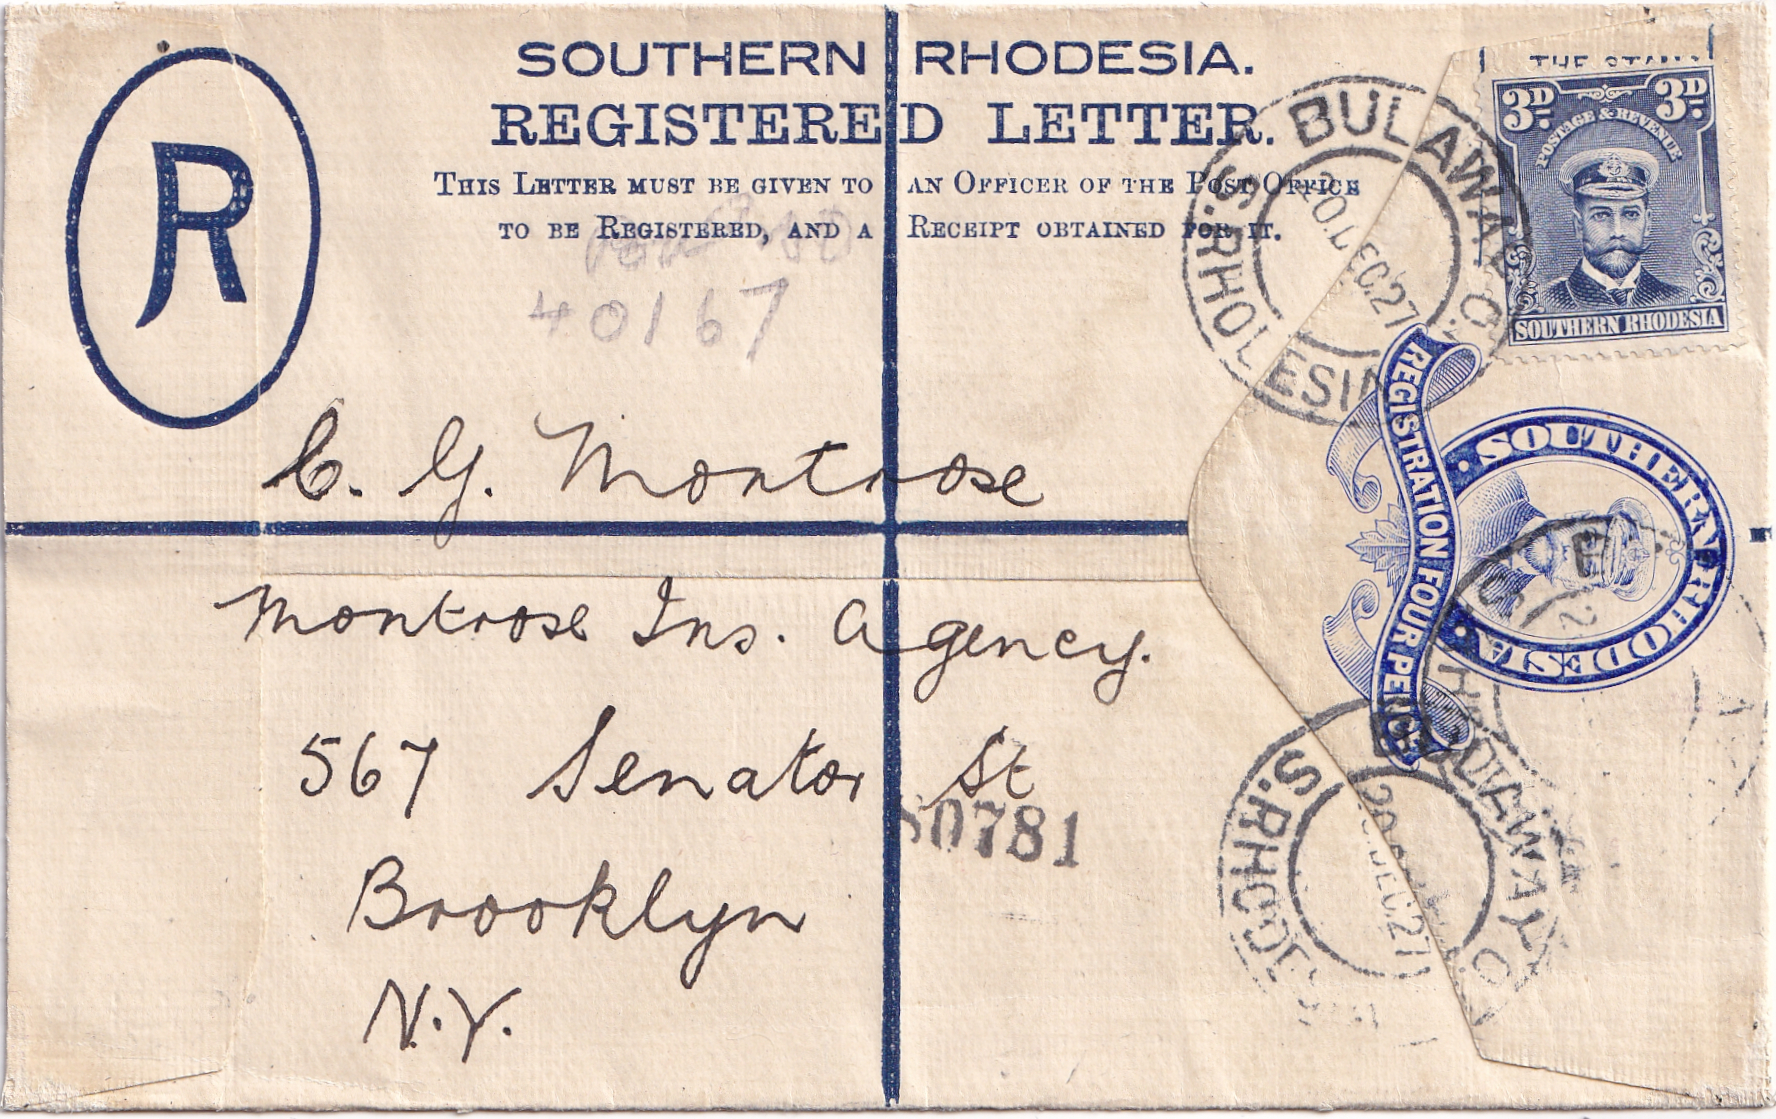 SOUTHERN RHODESIA.
REGISTERED LETTER.
THIS LETTER MUST BE GIVEN TO AN OFFICER OF THE POST OFFICE
TO BE REGISTERED, AND A RECEIPT OBTAINED FOR IT.
R
THE STAMP
3D 3D
POSTAGE & REVENUE
SOUTHERN RHODESIA
BULAWAYO
20.DEC.27
S.RHODESIA
40167
REGISTRATION FOUR PENCE
SOUTHERN RHODESIA
C. G. Montrose
Montrose Ins. Agency.
567 Senator St
80781
Brooklyn
N.Y.
BULAWAYO
20.DEC.27
S.RHODESIA